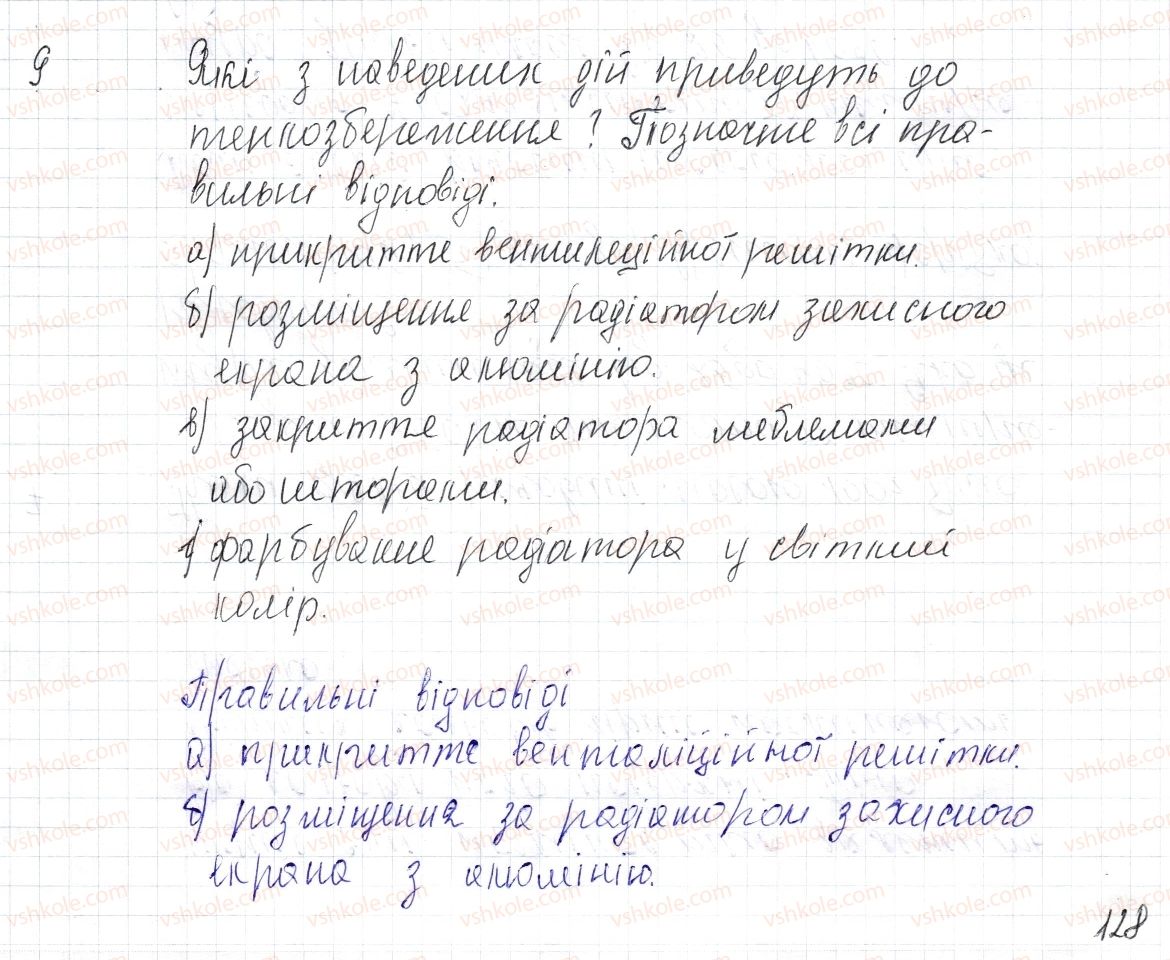 9 Які з наведених дій приведуть до
теплозбереження? Позначте всі пра-
вильні відповіді.
а) прикриття вентиляційної решітки.
б) розміщення за радіатором захисного
екрана з алюмінію.
в) закриття радіатора меблями
або шторами.
г) фарбування радіатора у світлий
колір.
Правильні відповіді
а) прикриття вентиляційної решітки.
б) розміщення за радіатором захисного
екрана з алюмінію.
128